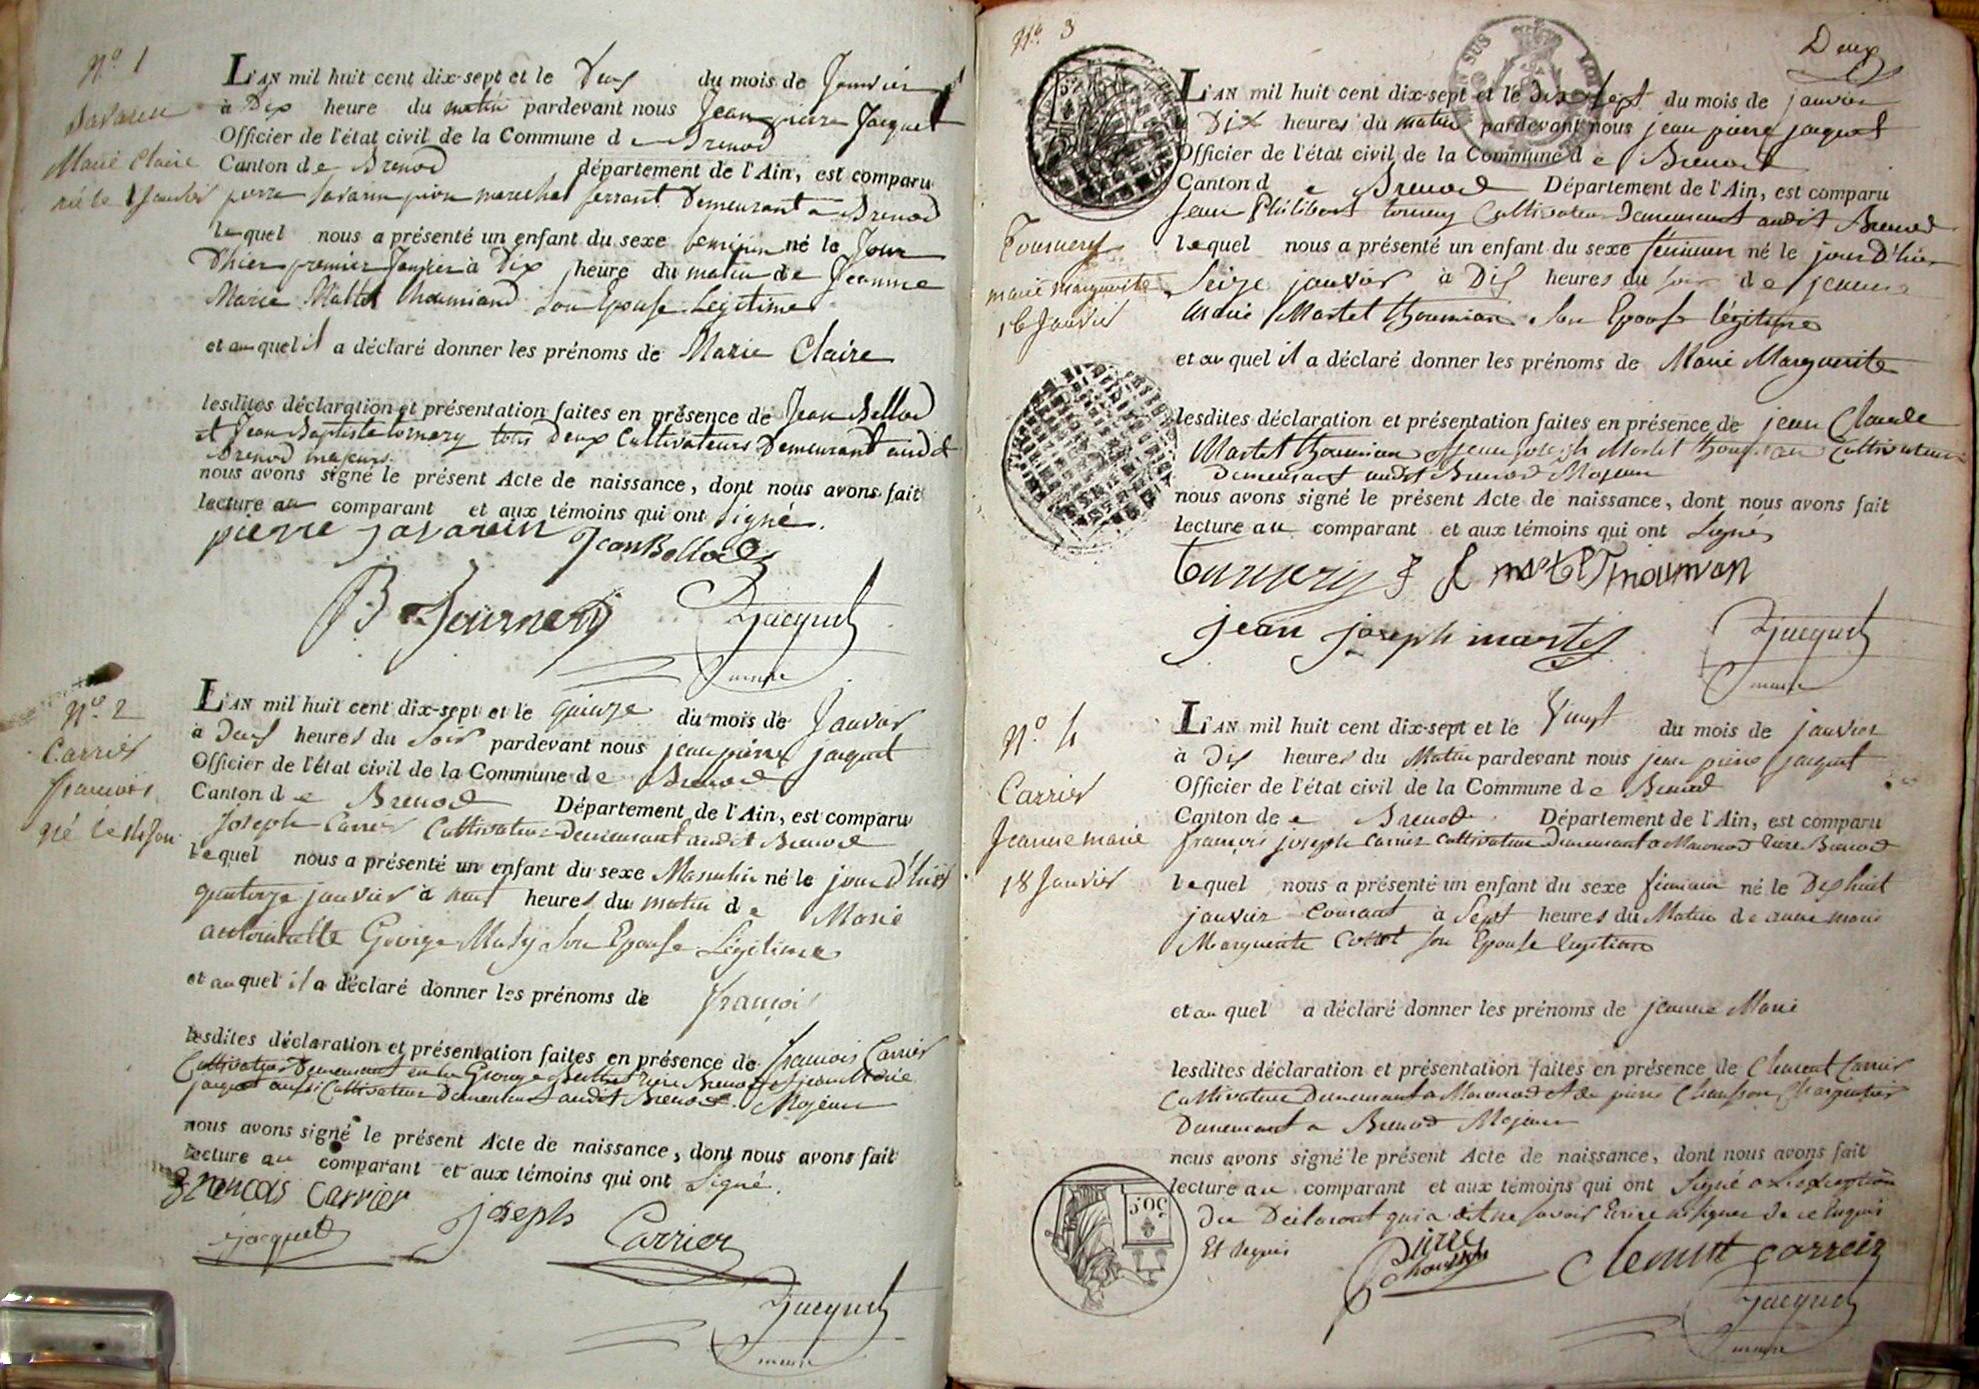 N.º 1
Savarin
Marie Claire
né le 1 Janvier
L'AN mil huit cent dix-sept et le Deux du mois de Janvier
à Dix heure du matin pardevant nous Jean pierre Jacquet
Officier de l'état civil de la Commune de Brenod
Canton de Brenod département de l'Ain, est comparu
pierre Savarin marechal ferrant Demeurant a Brenod
lequel nous a présenté un enfant du sexe feminin né le Jour
D'hier premier Janvier à Dix heure du matin de Jeanne
Marie Martel thoumiand Son Epouse Legitime
et auquel il a déclaré donner les prénoms de Marie Claire
lesdites déclaration et présentation faites en présence de Jean Bellod
et Jean Baptiste tornery tous Deux Cultivateurs Demeurant audit
Brenod majeurs
nous avons signé le présent Acte de naissance, dont nous avons fait
lecture au comparant et aux témoins qui ont Signé.
pierre Savarin Jean Bellod
B Tournery Jacquet
maire
N.º 2
Carrier
francois
né le 14 Jan
L'AN mil huit cent dix-sept et le quinze du mois de Janvier
à Deux heures du Soir pardevant nous jean pierre jacquet
Officier de l'état civil de la Commune de Brenod
Canton de Brenod Département de l'Ain, est comparu
Joseph Carrier Cultivateur Demeurant audit Brenod
lequel nous a présenté un enfant du sexe Masculin né le jour D'hier
quatorze janvier à neuf heures du matin de Marie
antoinette George Mady Son Epouse Légitime
et auquel il a déclaré donner les prénoms de francois
lesdites déclaration et présentation faites en présence de francois Carrier
Cultivateur Demeurant George Brenod et jean Marie
jacquet aussi Cultivateur Demeurant audit Brenod Majeurs
nous avons signé le présent Acte de naissance, dont nous avons fait
lecture au comparant et aux témoins qui ont Signé.
francois Carrier joseph Carrier
jacquet
Jacquet
maire
N.º 3
Deux
Tournery
marie marguerite
16 Janvier
L'AN mil huit cent dix-sept et le dix Sept du mois de janvier
Dix heures du matin pardevant nous jean pierre jacquet
Officier de l'état civil de la Commune de Brenod
Canton de Brenod Département de l'Ain, est comparu
Jean Philibert tornery Cultivateur Demeurant audit Brenod
lequel nous a présenté un enfant du sexe féminin né le jour D'hier
Seize janvier à Dix heures du soir de jeanne
Marie Martel thoumian Son Epouse légitime
et au quel il a déclaré donner les prénoms de Marie Marguerite
lesdites déclaration et présentation faites en présence de jean Claude
Martel thoumian et jean joseph Martel thoumian Cultivateurs
demeurant audit Brenod Majeurs
nous avons signé le présent Acte de naissance, dont nous avons fait
lecture au comparant et aux témoins qui ont Signés
Martel Thouman
jean joseph martel Jacquet
maire
N.º 4
Carrier
Jeanne marie
18 Janvier
L'AN mil huit cent dix-sept et le Vingt du mois de janvier
à Dix heures du Matin pardevant nous jean pierre jacquet
Officier de l'état civil de la Commune de Brenod
Canton de Brenod Département de l'Ain, est comparu
françois joseph Carrier Cultivateur Demeurant a Brenod
lequel nous a présenté un enfant du sexe féminin né le Dix huit
janvier Courant à Sept heures du Matin de anne marie
Marguerite Son Epouse légitime
et au quel a déclaré donner les prénoms de jeanne Marie
lesdites déclaration et présentation faites en présence de Clement Carrier
Cultivateur Demeurant a et de pierre Charpentier
Demeurant a Brenod Majeurs
nous avons signé le présent Acte de naissance, dont nous avons fait
lecture au comparant et aux témoins qui ont Signé a L'exception
Du Declarant qui a dit ne savoir Ecrire ni signer de ce Enquis
Et requis
pierre clement carreir
Jacquet
maire